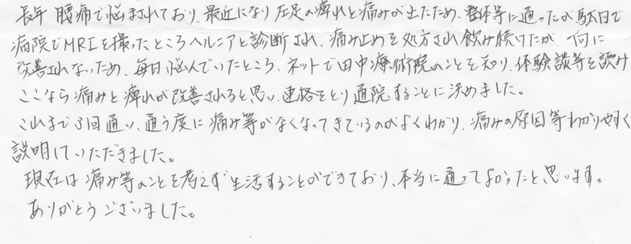 長年 腰痛で悩まされており、最近になり左足の痺れと痛みが出たため、整体等に通ったが駄目で
病院でMRIを撮ったところヘルニアと診断され、痛み止めを処方され飲み続けたが、一向に
改善されないため、毎日悩んでいたところ、ネットで田中療術院のことを知り、体験談等を読み
ここなら痛みと痺れが改善されると思い、連絡をとり通院することに決めました。
これまで3回通い、通う度に痛み等がなくなってきているのがよくわかり、痛みの原因等わかりやすく
説明していただきました。
現在は痛み等のことを考えず生活することができており、本当に通ってよかったと思います。
ありがとうございました。